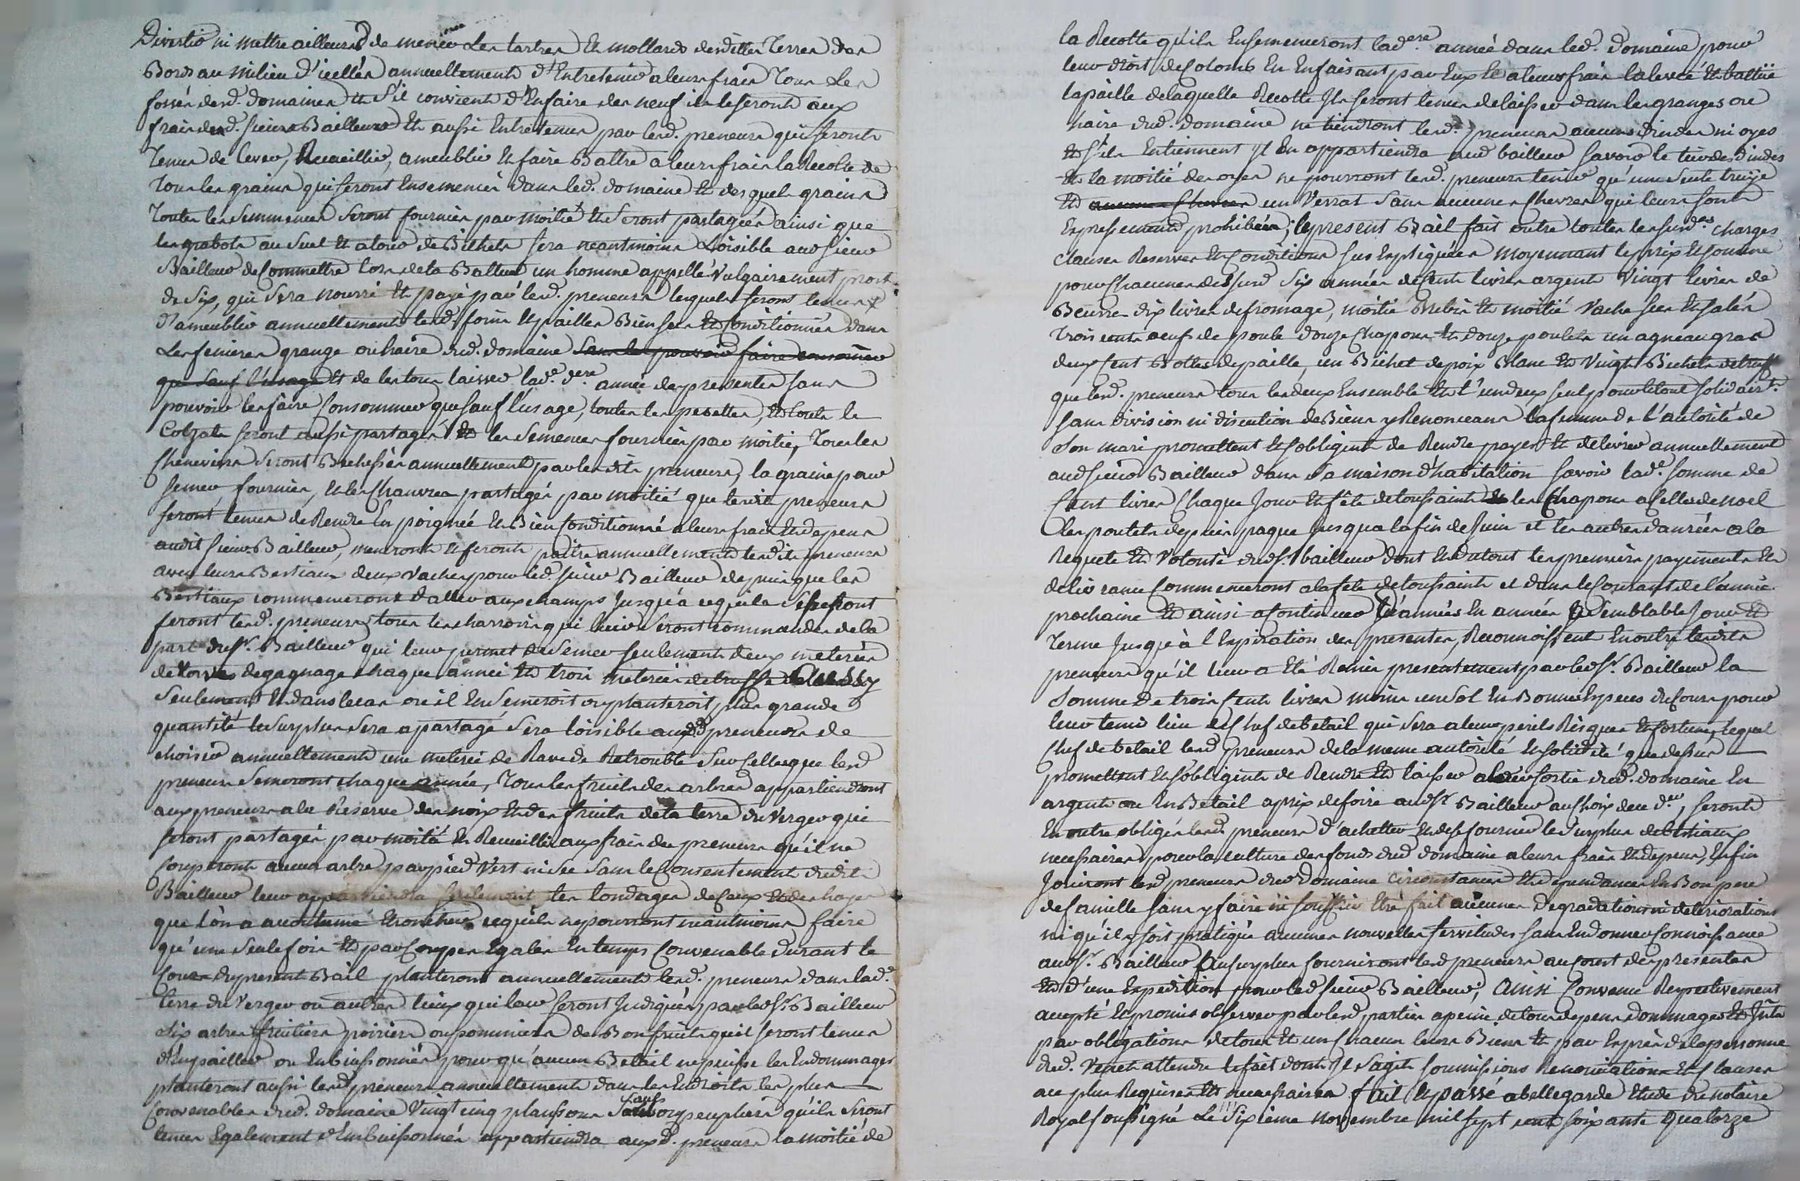 Divertir ni mettre ailleurs de mener Les tartres Et mollards desdittes Terres des
Bords au milieu d'icelles annuellement d'Entretenir a leurs frais Tous Les
fossés desd. domaines Et s'il convient d'En faire des neufs ils le seront aux
frais desd. sieurs Bailleurs Et aussi Entretenus par lesd. preneurs qui seront
Tenus de Lever, Recueillir, ameublir Et faire Battre a leurs frais La Recolte de
Tous les grains qui seront Ensemencés dans led. domaine Et desquels grains
Toutes les semences seront fournies par moitié Et seront partagées ainsi que
les au suel Et a loird de Bichets sera neantmoins Loisible aud sieur
Bailleur de Commettre Lors de la Batture un homme appellé Vulgairement
de six, qui sera nourri Et payé par lesd. preneurs lesquels seront tenus
d'ameublir annuellement lesd. foins Et pailles Bien secs Et Conditionnés dans
Les fenieres grange ou haire dud. domaine sans les pouvoir faire consommer
que sauf l'usage Et de les tous laisser lad.e d.ere année des presentes sans
pouvoir les faire Consommer que sauf l'usage, toutes les pesettes, Et toute le
Colzat seront aussi partagés Et les semences fournies par moitié, Tous les
Chenevirs seront Bechessés annuellement par lesdits preneurs, la graine pour
semer fournie, Et les Chanvres partagés par moitié que lesdits preneurs
seront tenus de Rendre En poignée Et Bien Conditionné a leurs frais Et depens
audit sieur Bailleur, meneront Et feront paitre annuellement lesdits preneurs
avec leurs Bestiaux deux vaches pour led. sieur Bailleur depuis que les
Bestiaux commenceront d'aller aux champs Jusqu'a ce qu'ils
feront lesd. preneurs tous les charrois qui leurs seront commandés de la
part dud. Sr. Bailleur qui leur permet de semer seulement deux meterées
de degagnage chaque année Et trois meterées de truffe aussy
seulement Et dans le cas où il En semeroit ou planteroit plus grande
quantité le surplus sera a partage sera loisible auxd. preneurs de
choisir annuellement une meterée de Raves de Retrouble sur celles que lesd
preneurs semeront chaque année, Tous les fruits des arbres appartiendront
aux preneurs a la Reserve des noix Et des fruits de la terre du Verger qui
seront partagés par moitié Et Recueillis aux frais des preneurs qu'il ne
Couperont aucun arbre par pied Vert ni sec sans le Consentement dudit
Bailleur leur appartiendra seulement les tondages de ceux Et des hayes
que l'on a accoutumé Etroncher ce qu'ils ne pouvront neantmoins faire
qu'une seule fois Et par Coupes Egales En temps Convenable Durant le
Cours du present Bail planteront annuellement lesd. preneurs dans lad.
terre du Verger ou autres lieux qui leur seront Indiqués par led. Sr. Bailleur
six arbres fruitiers poiriers ou pommiers de Bon fruit qu'il seront tenus
d'Empailler ou Embuissonner pour qu'aucun Betail ne puisse les Endommager
planteront aussi lesd. preneurs annuellement dans les Endroits les plus
Convenables dud. domaine Vingt cinq plansons saules ou peupliers qu'ils seront
tenus Egalement d'Embuissonner appartiendra auxd. preneurs la moitié de
la Recolte qu'ils Ensemenceront lad.ere année dans led. Domaine pour
leur droit de Colons En En faisant par Eux Et a leurs frais la levée Et batture
la paille de laquelle Recolte Ils seront tenus de laisser dans les granges ou
haire dud. domaine ne tiendront lesd. preneurs aucuns Dindes ni oyes
Et s'ils En tiennent Il En appartiendra aud bailleur savoir le tiers des Dindes
Et la moitié des oyes ne pourront lesd. preneurs tenir qu'une seule truÿe
Et aucunes Chevres un Verrat sans aucunes Chevres qui leurs sont
Expressement prohibées, le present Bail fait outre toutes les susd.es charges
Clauses Reserves Et Conditions sus Expliquées moyennant le prix Et somme
pour Chacunes desd. six années de Cent livres argent Vingt livres de
Beurre dix livres de fromage, moitié Brebis Et moitié Vache sec Et salés
Trois cents oeufs de poule Douze Chapons Et Douze poulets un agneau gras
deux Cent Bottes de paille, un Bichet de pois Blanc Et Vingt Bichets de truffe
que lesd. preneurs tous les deux Ensemble Et l'un d'eux seul pour le tout solidairt.
sans Division ni discution de Biens y Renonceans la femme de l'autorité de
son mari promettent Et s'obligent de Rendre payer Et delivrer annuellement
aud sieur Bailleur dans sa maison d'habitation savoir lad. somme de
Cent livres Chaque Jour Et fête de toussaint Et les Chapons a Celle de Noel
Les poulets depuis paque Jusqu'a la fin de Juin et les autres danrées a la
Requete Et Volonté dud. Sr. bailleur dont En du tout les premiers payements Et
delivrance Commenceront a la fête de toussaint et dans le Courant de l'année
prochaine Et ainsi a Continuer d'années En année a semblable Jour Et
Terme Jusqu'à l'Expiration des presentes, Reconnoissent En outre lesdits
preneurs qu'il leur a Eté Remis presentement par led. Sr. Bailleur la
somme De trois Cent livres moins un sol En Bonnes Especes du Cours pour
leur tenir lieu de Chef de betail qui sera a leurs perils Risques Et fortunes, lequel
Chef de betail lesd. preneurs de la meme autorité Et solidité que dessus
promettent Et s'obligent de Rendre Et laisser a leur sortie dud. domaine En
argent ou En Betail a prix de foire aud. Sr. Bailleur au choix de ce d.er, seront
En outre obligés lesd. preneurs d'achetter Et de fournir le surplus de bestiaux
necessaires pour la culture des fonds dud domaine a leurs frais Et depens, Enfin
Jouieront lesd preneurs dud Domaine Circonstances Et dependances En Bon pere
de famille sans y faire ni souffrir Etre fait aucunes degradations ni deteriorations
ni qu'il y soit pratiqué aucunes nouvelles servitudes sans En donner Connoissance
aud. Sr. Bailleur Au surplus fourniront lesd preneurs au coust des presentes
Et d'une Expedition pour led sieur Bailleur, Ainsi Convenu Respectivement
accepté Et promis observer par lesd. parties a peine de tous depens dommages Et Ints
par obligations de tous Et un chacun leurs Biens Et par Exprès de la personne
dud. Veuet attendu le fait dont Il s'agit soumissions Renonciations Et Clauses
au plus Requises Et necessaires fait Et passé a bellegarde Etude du notaire
Royal soussigné Le sixieme novembre mil sept cent soixante quatorze